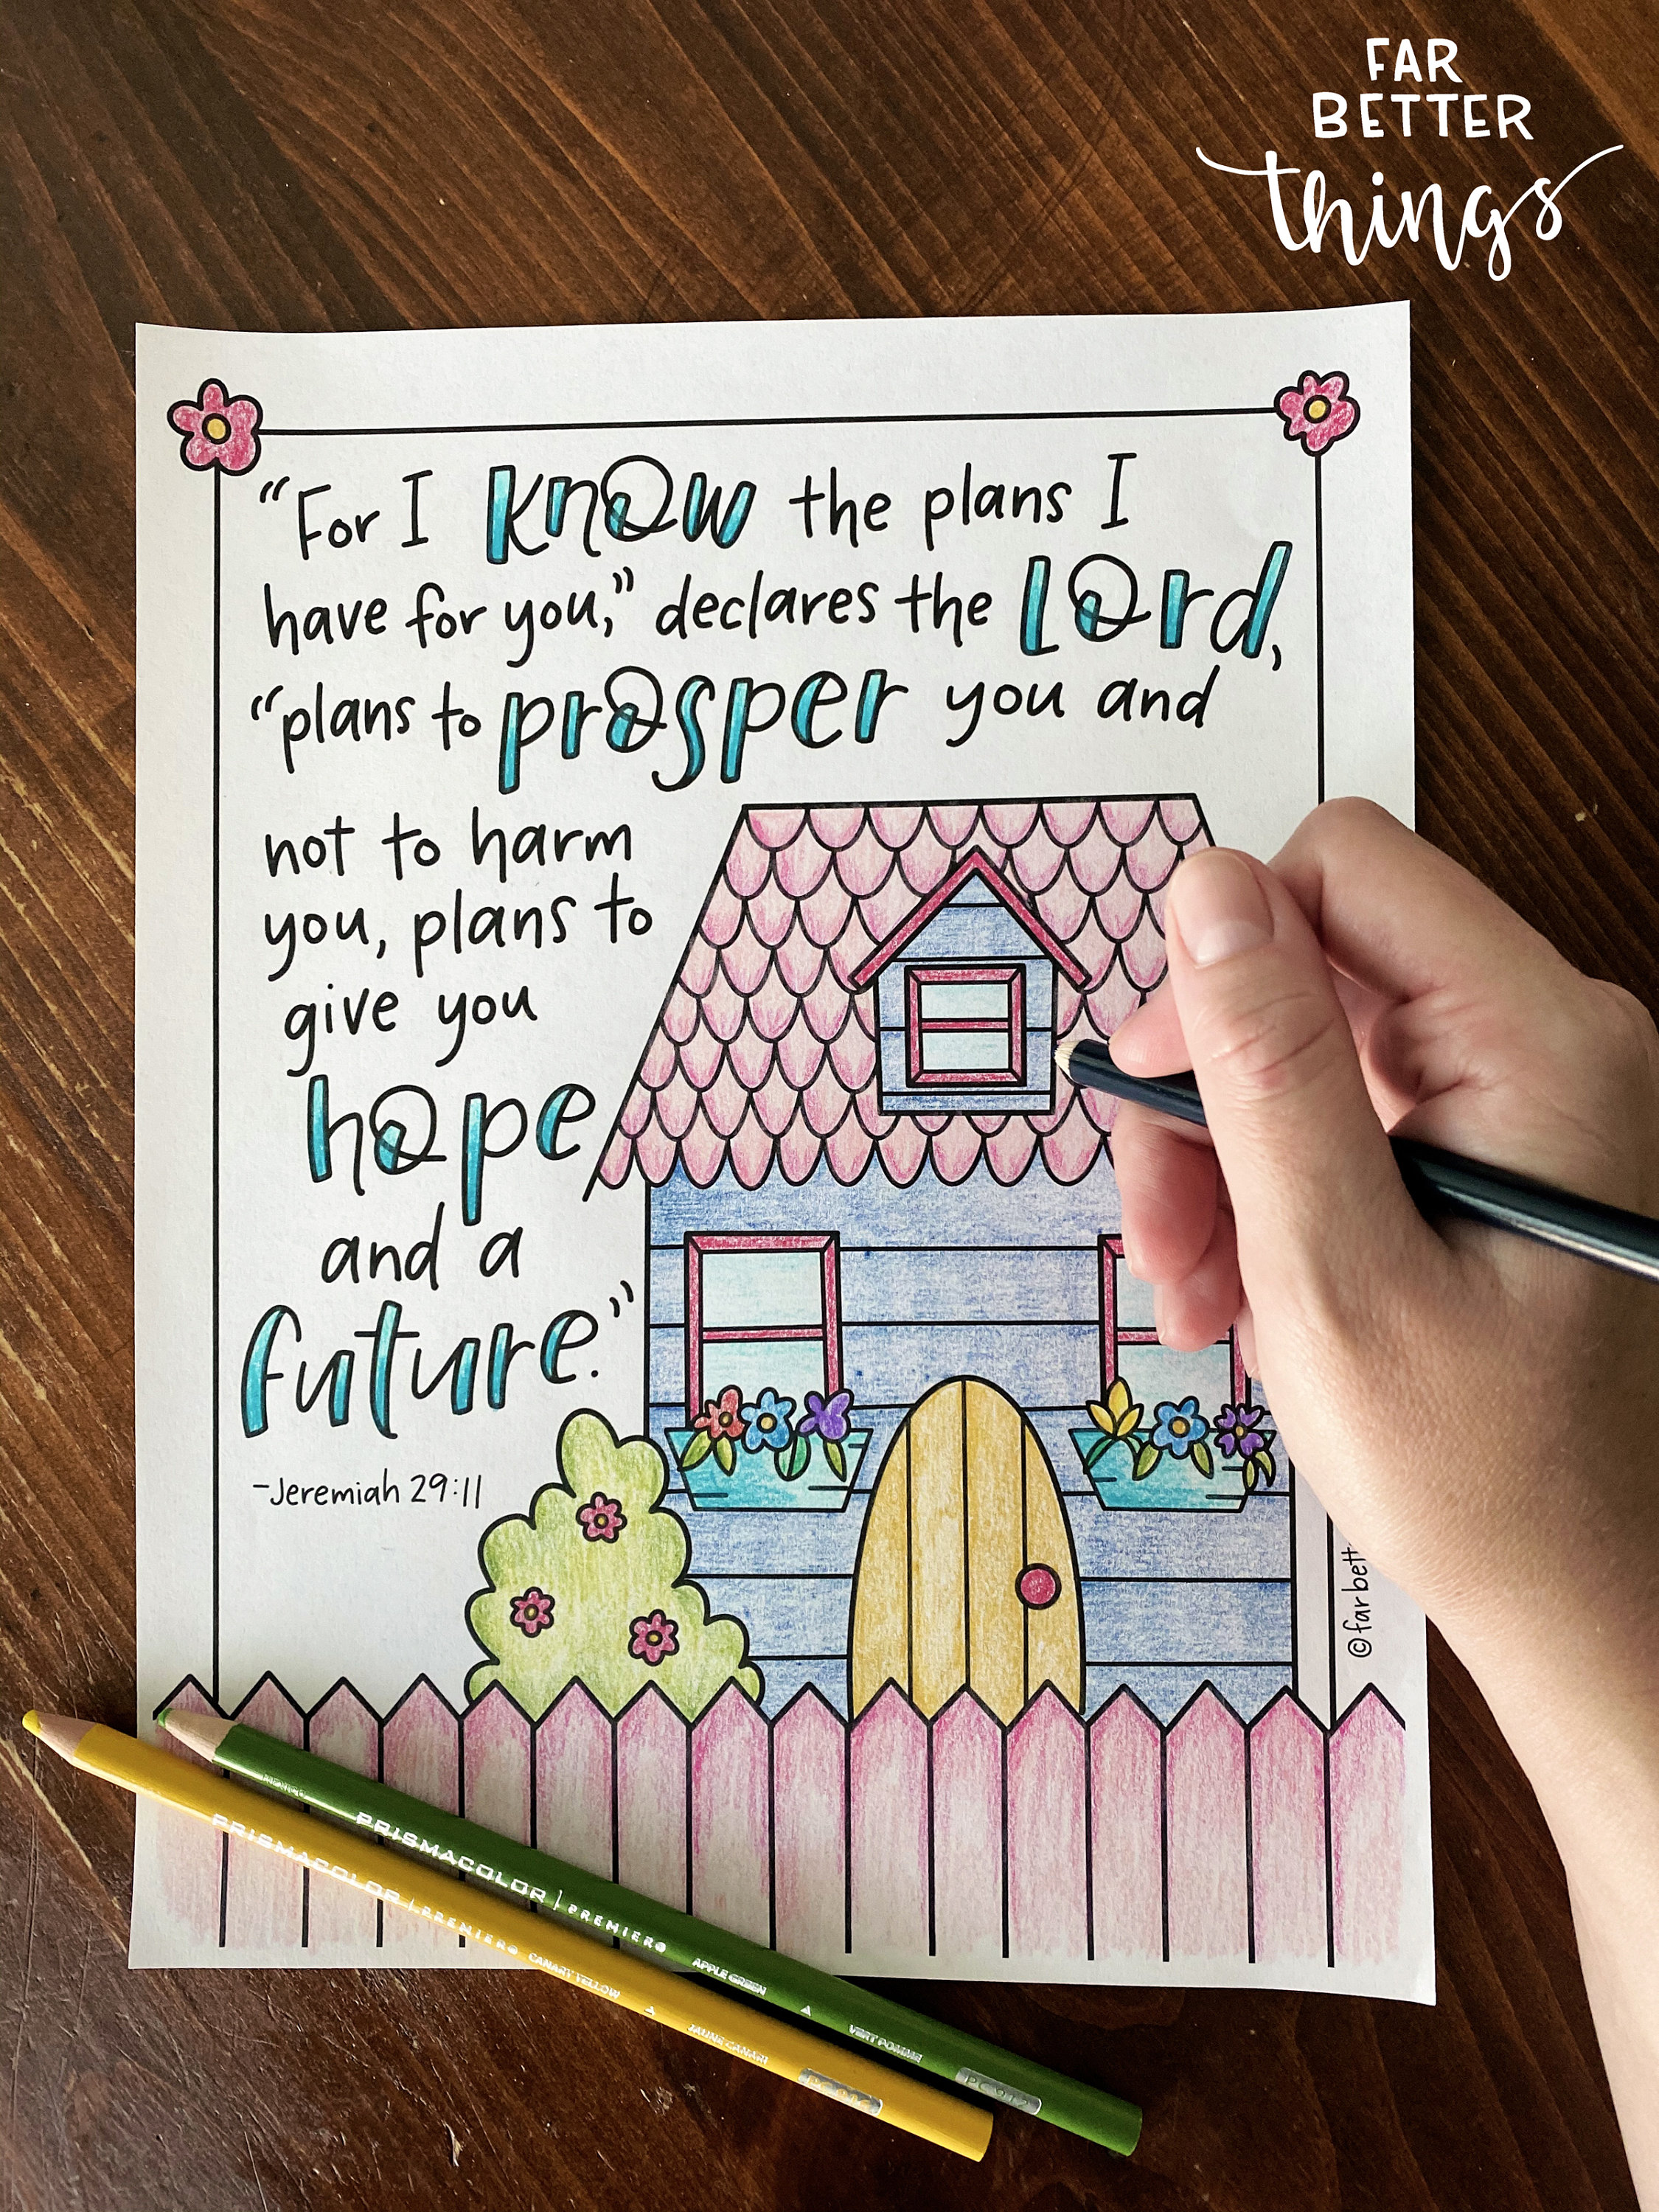 FAR
BETTER
things
"For I know the plans I
have for you," declares the Lord,
"plans to prosper you and
not to harm
you, plans to
give you
hope
and a
future."
-Jeremiah 29:11
©far bett
MEXICO
PRISMACOLOR | PREMIER® APPLE GREEN VERT POMME PC 912
PRISMACOLOR | PREMIER® CANARY YELLOW JAUNE CANARI